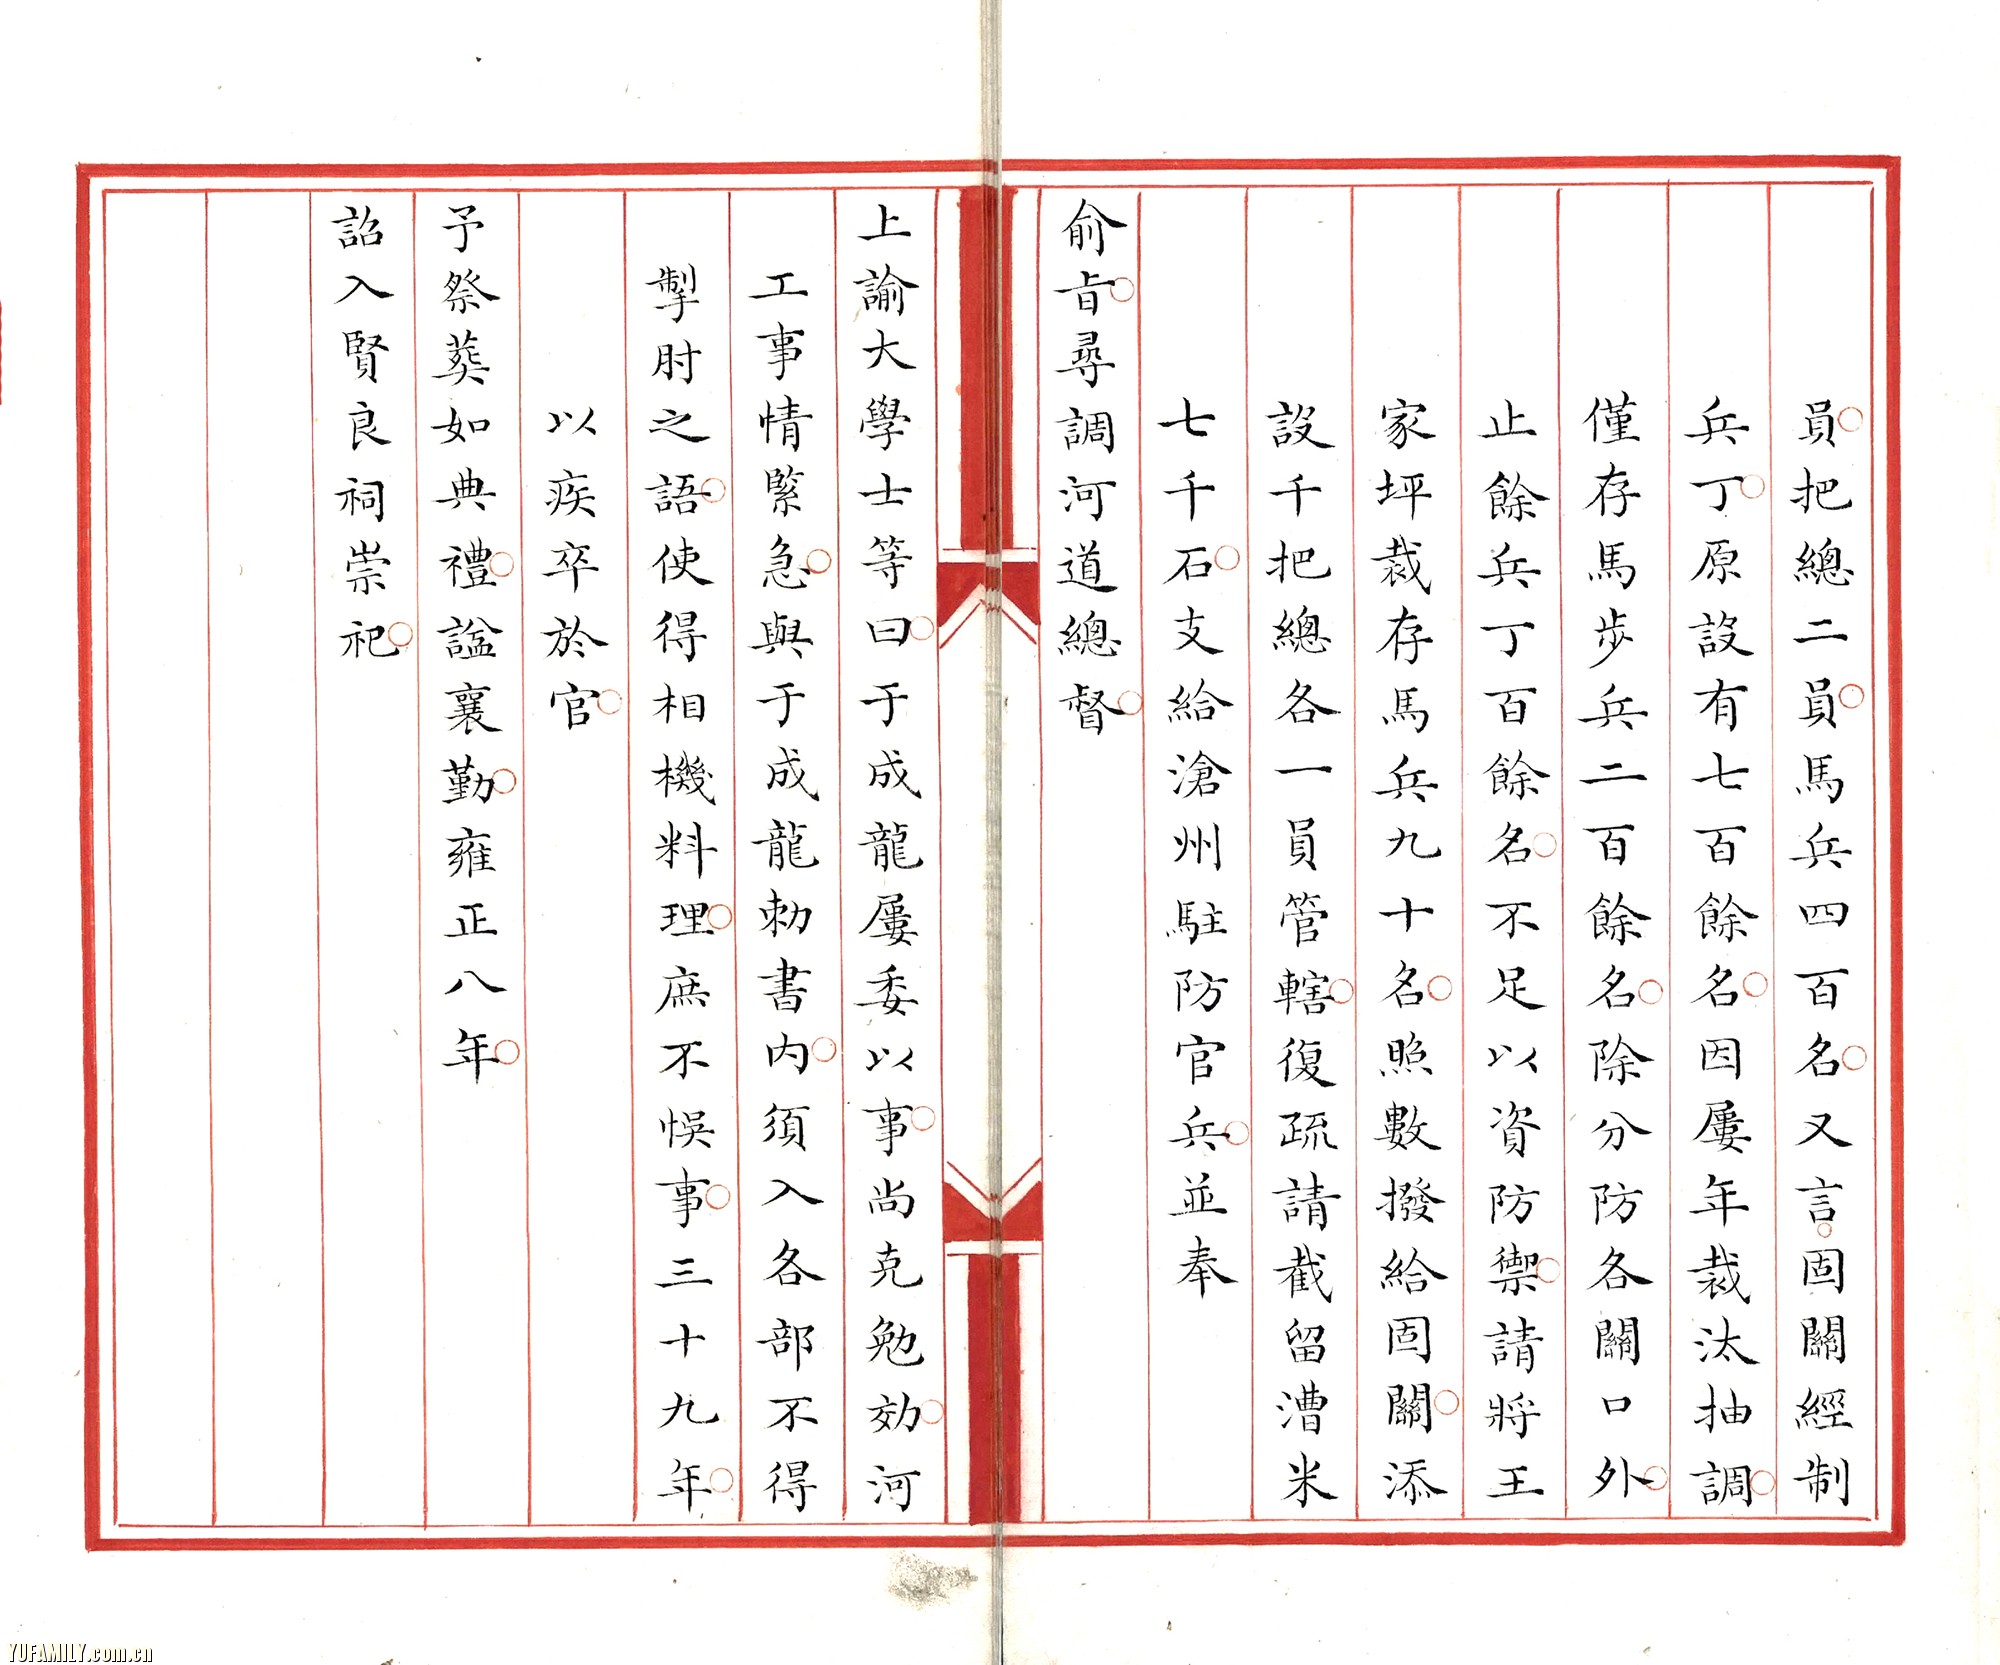 員把總二員馬兵四百名又言固關經制
兵丁原設有七百餘名因屢年裁汰抽調
僅存馬步兵二百餘名除分防各關口外
止餘兵丁百餘名不足以資防禦請將王
家坪裁存馬兵九十名照數撥給固關添
設千把總各一員管轄復疏請截留漕米
七千石支給滄州駐防官兵並奉
俞旨尋調河道總督
上諭大學士等曰于成龍屢委以事尚克勉効河
工事情緊急與于成龍勅書內須入各部不得
掣肘之語使得相機料理庶不悞事三十九年
以疾卒於官
予祭葬如典禮諡襄勤雍正八年
詔入賢良祠崇祀
YUFAMILY.com.cn